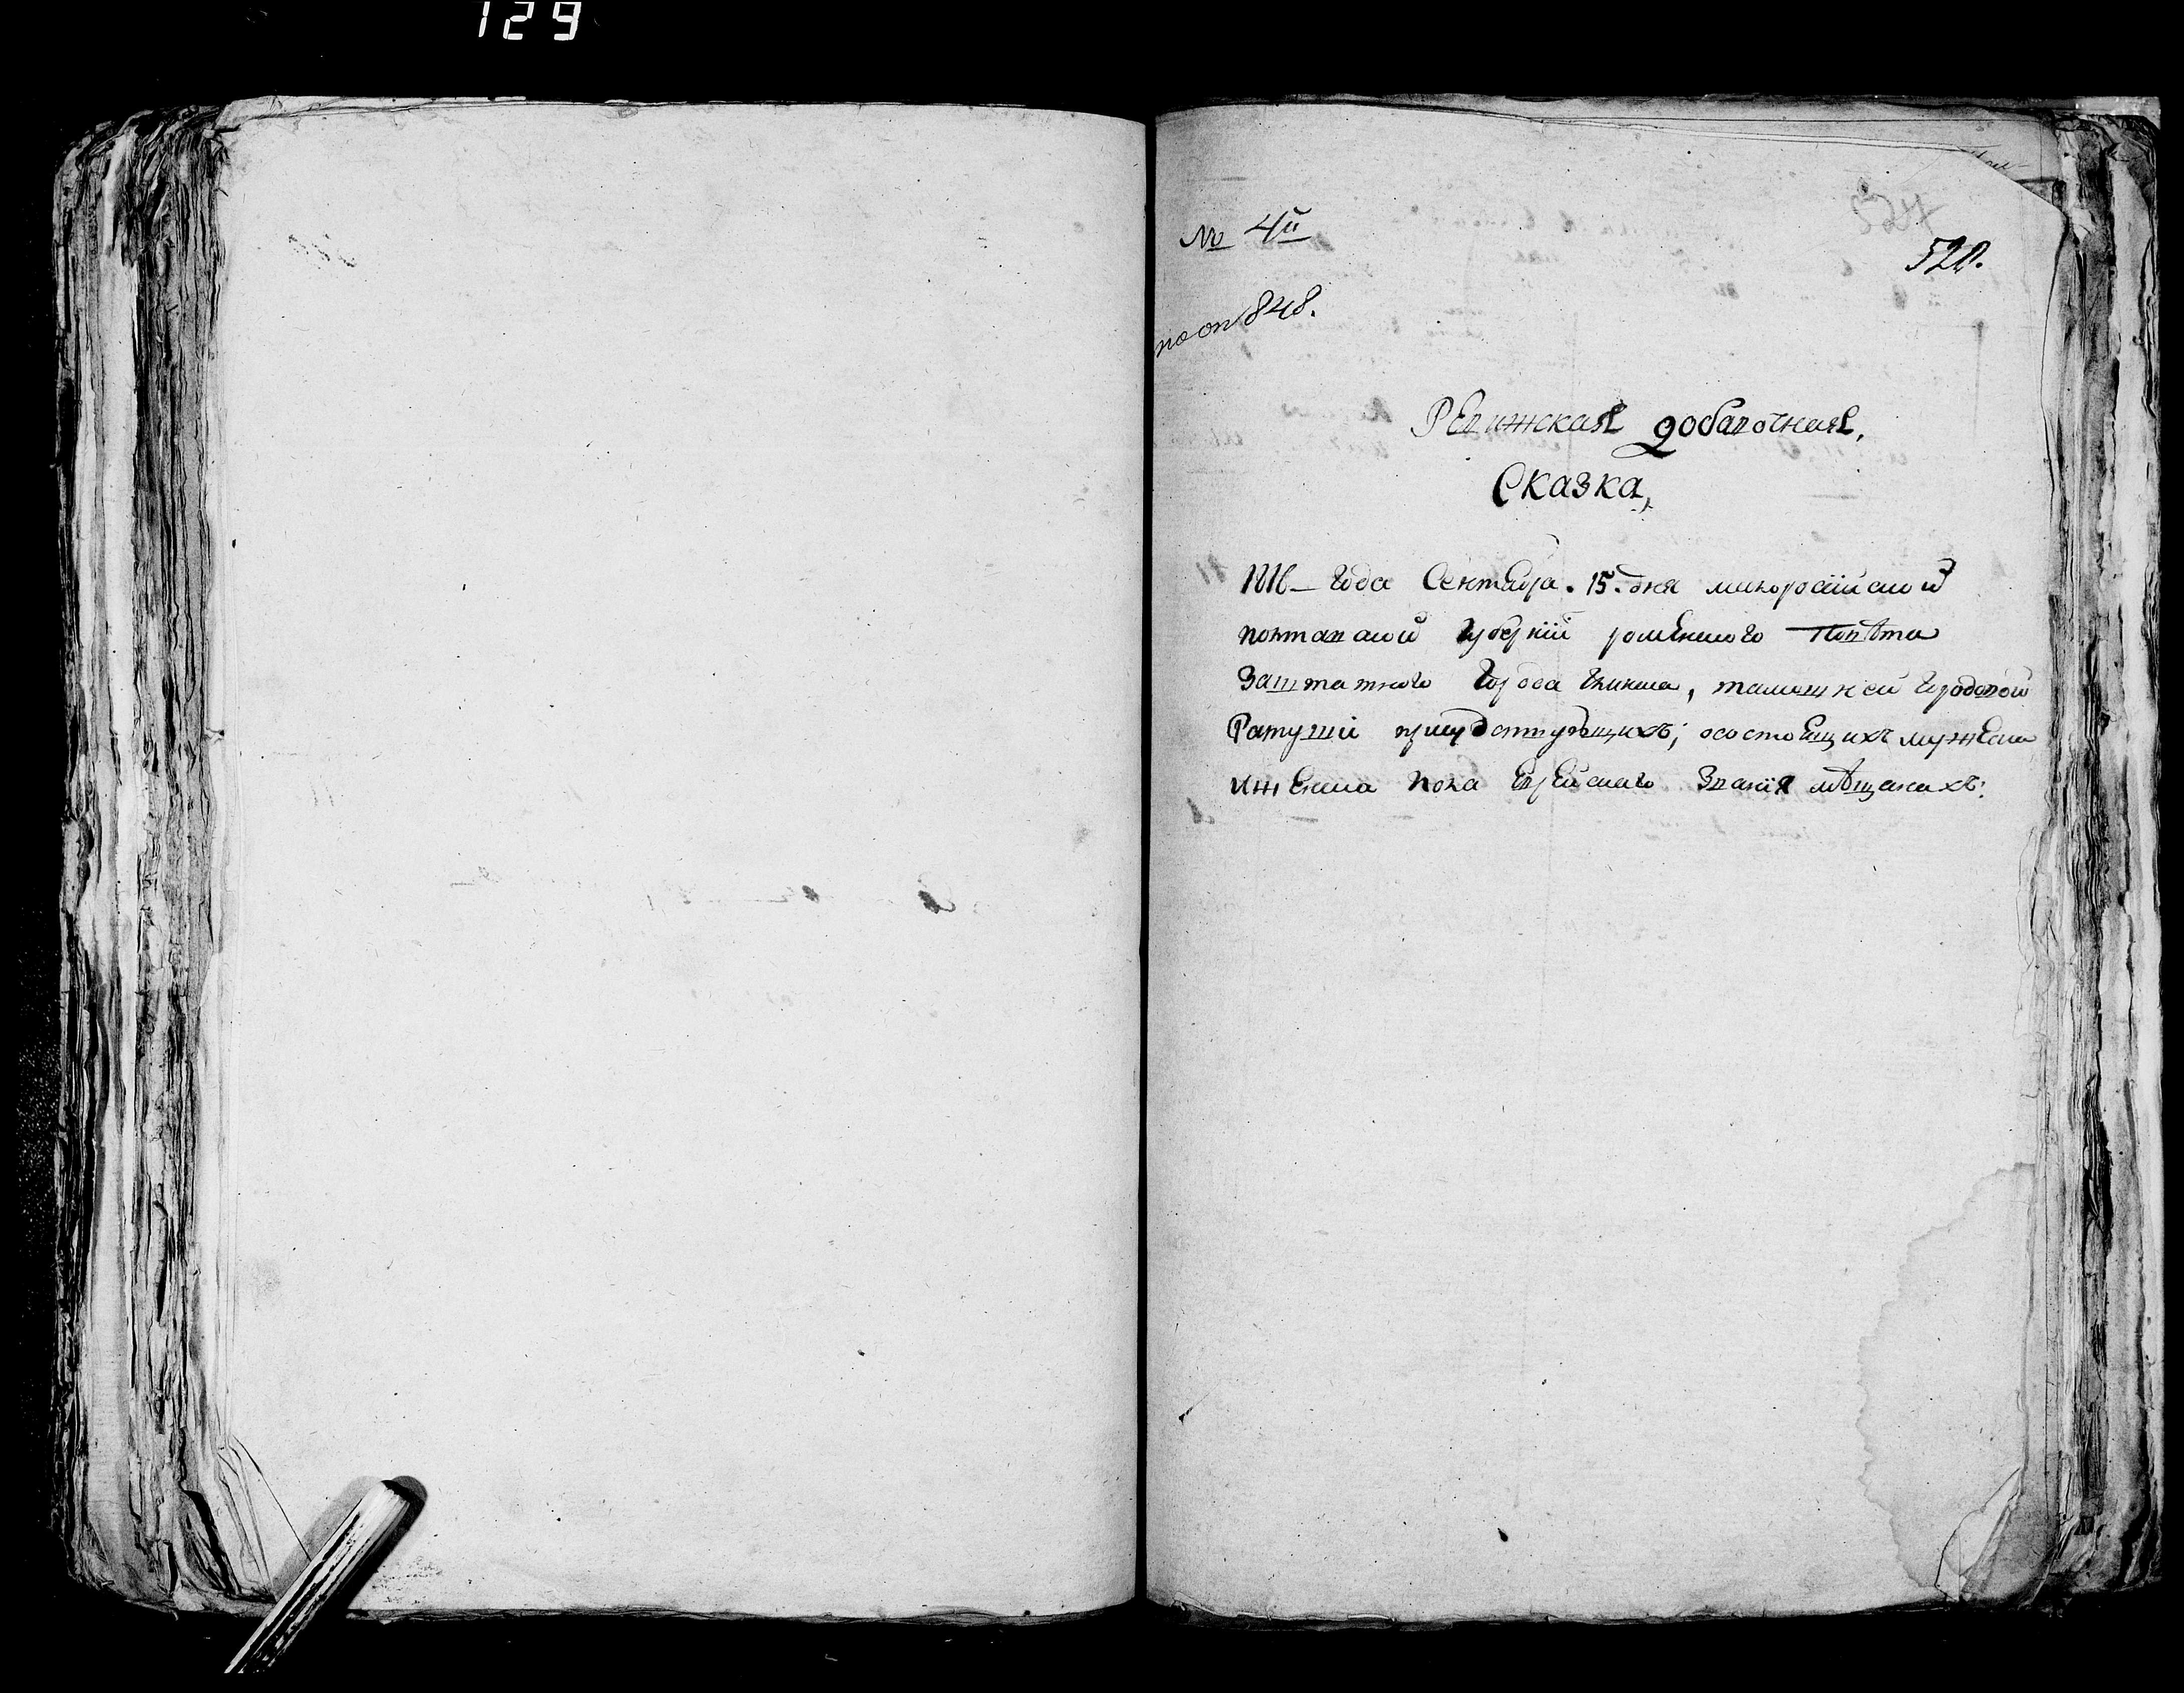 129
№ 4й
527
520.
по оп 848.
Ревижская добавочная,
Сказка,
1818 года Сентября. 15. дня малороссійской
полтавской губерніи роменского повѣта
Заштатного города глинска, тамошней городовой
Ратуши присудствующихъ; осостоящихъ мужеска
иженска пола еврейскаго Званія мѣщанахъ: